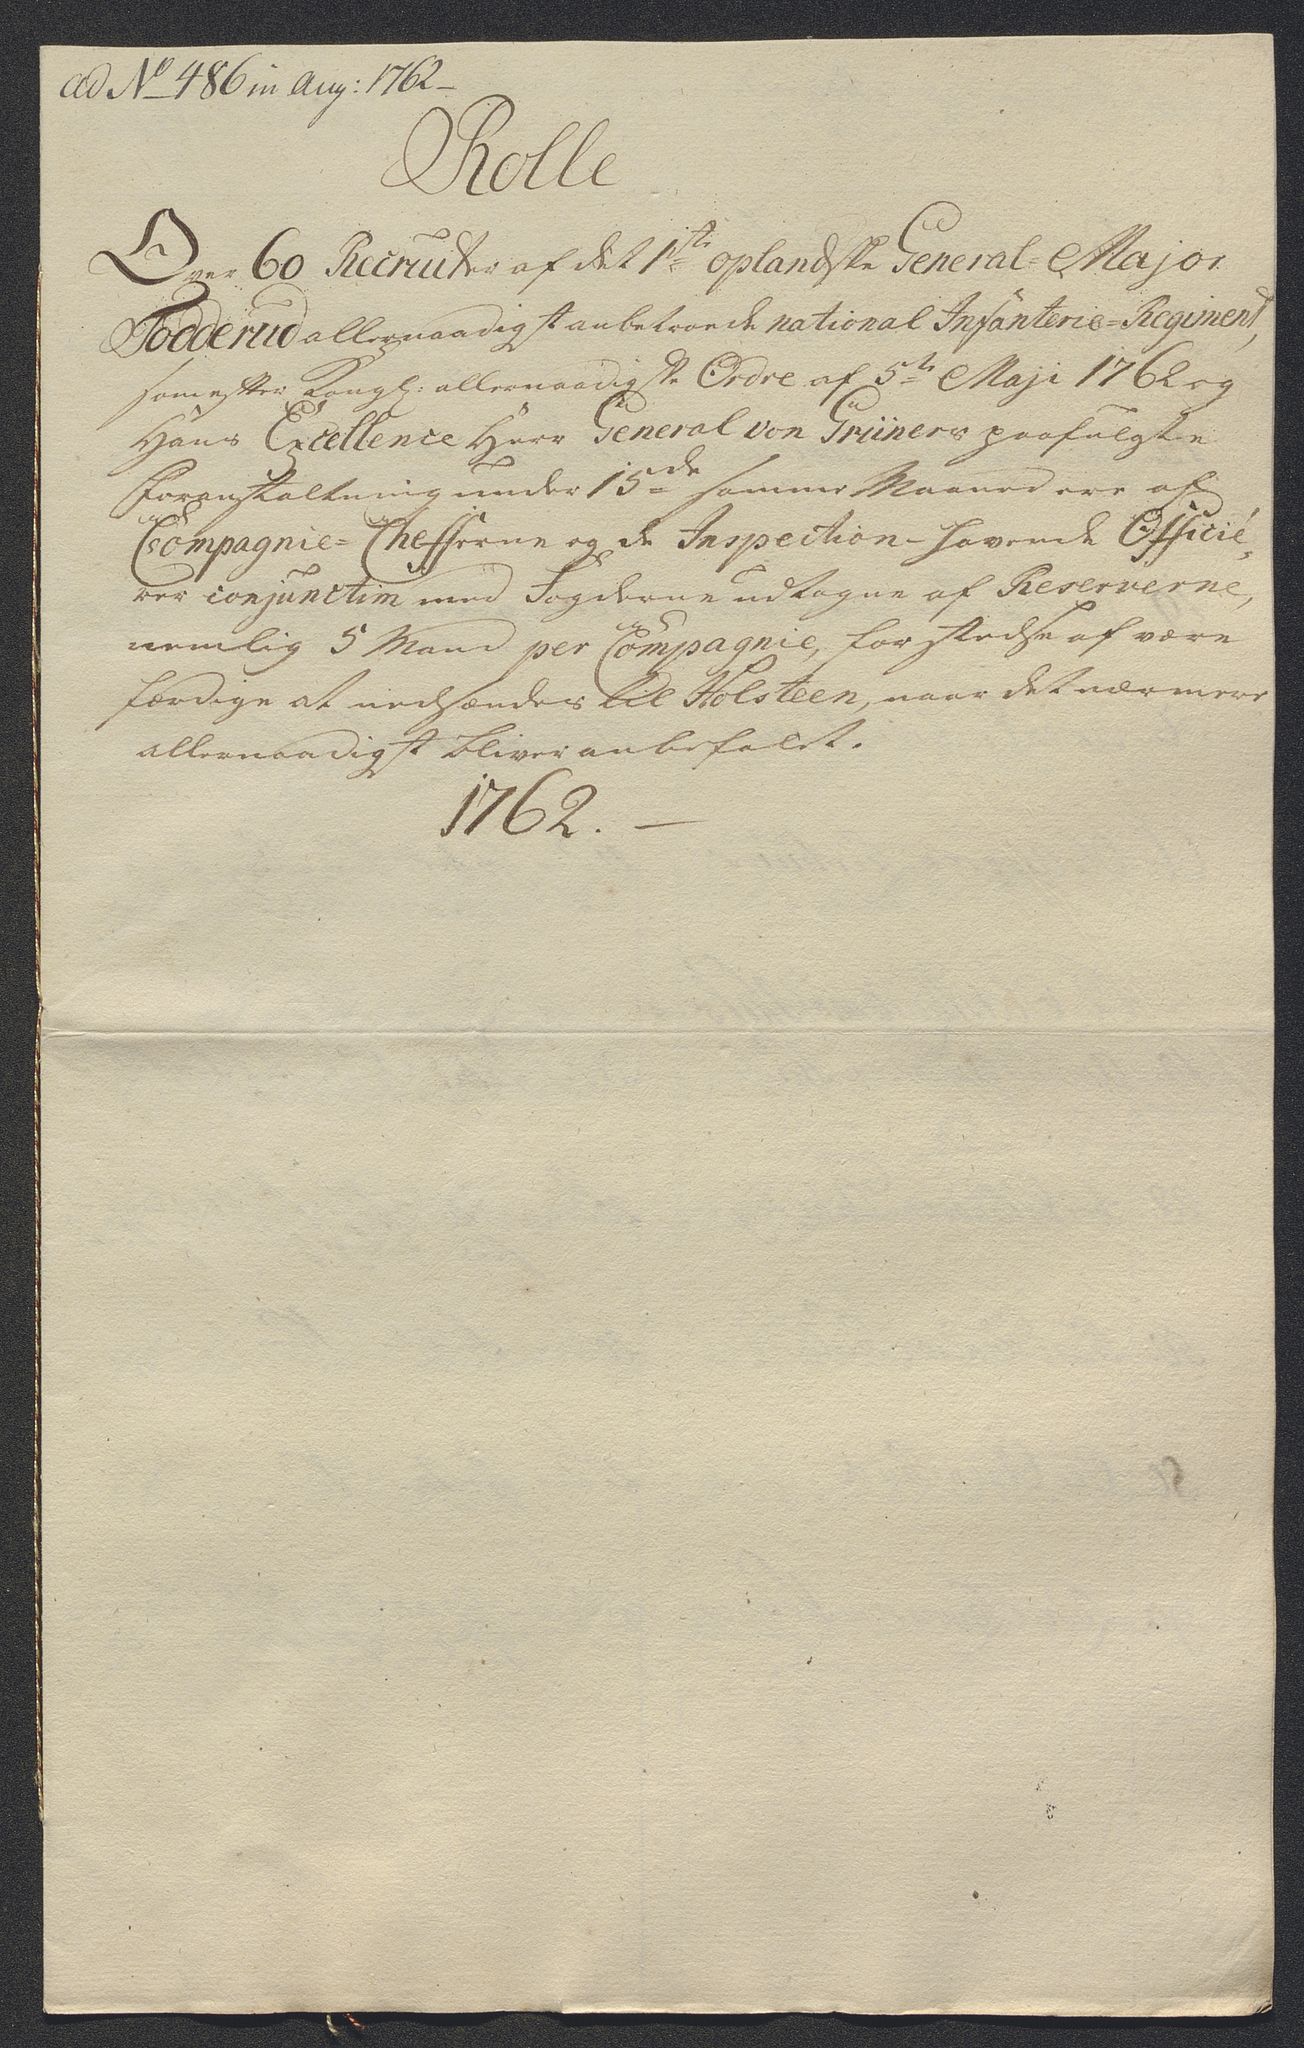 ad No 486 in Aug: 1762 –
Rolle
Over 60 Recruter af det 1ste oplandske General-Major
Todderud allernaadigst anbetroede national Infanterie-Regiment,
som efter Kongl: allernaadigste Ordre af 5te Maji 1762 og
Hans Excellence Herr General von Grüners paafulgte
Foranstaltning under 15de samme Maaned ere af
Compagnie-Chefferne og de Inspection-havende Officié-
rer conjunctim med Fogderne udtagne af Reserverne,
nemlig 5 Mand per Compagnie, for stedse af være
færdige at nedsændes til Holsteen, naar det nærmere
allernaadigst bliver anbefalet.
1762. –